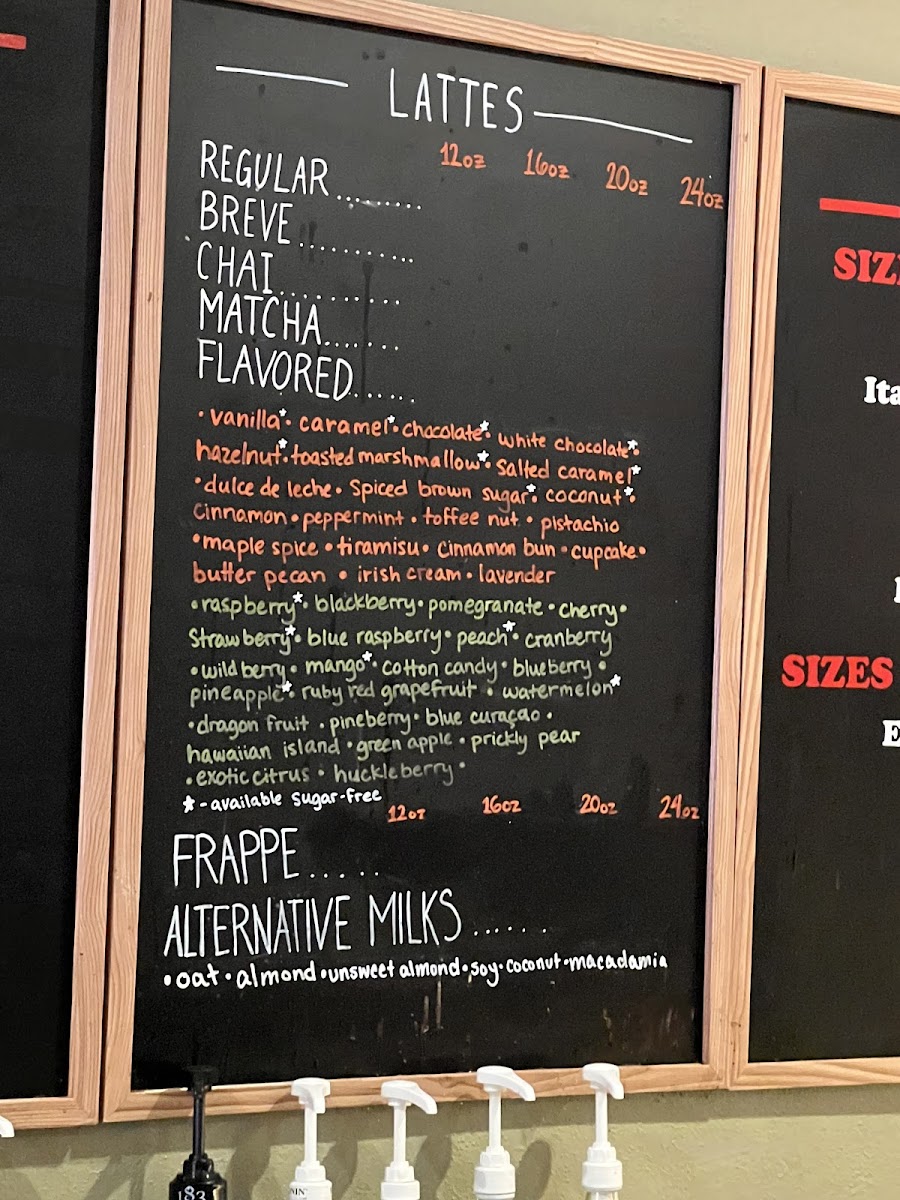 LATTES
12oz 16oz 20oz 24oz
REGULAR.........
BREVE...........
CHAI...........
MATCHA.......
FLAVORED......
•vanilla*• caramel*• chocolate*• white chocolate*•
hazelnut*• toasted marshmallow*• salted caramel*
•dulce de leche• Spiced brown sugar*• coconut*•
cinnamon • peppermint • toffee nut • pistachio
•maple spice • tiramisu • cinnamon bun • cupcake•
butter pecan • irish cream • lavender
•raspberry*• blackberry• pomegranate • cherry•
Strawberry*• blue raspberry• peach*• cranberry
•wild berry• mango*• cotton candy• blueberry •
pineapple*• ruby red grapefruit • watermelon*
•dragon fruit • pineberry• blue curaçao •
hawaiian island • green apple • prickly pear
•exotic citrus • huckleberry •
*-available sugar-free
12oz 16oz 20oz 24oz
FRAPPE......
ALTERNATIVE MILKS ......
•oat•almond•unsweet almond•soy•coconut•macadamia
SIZ
Ita
SIZES
183